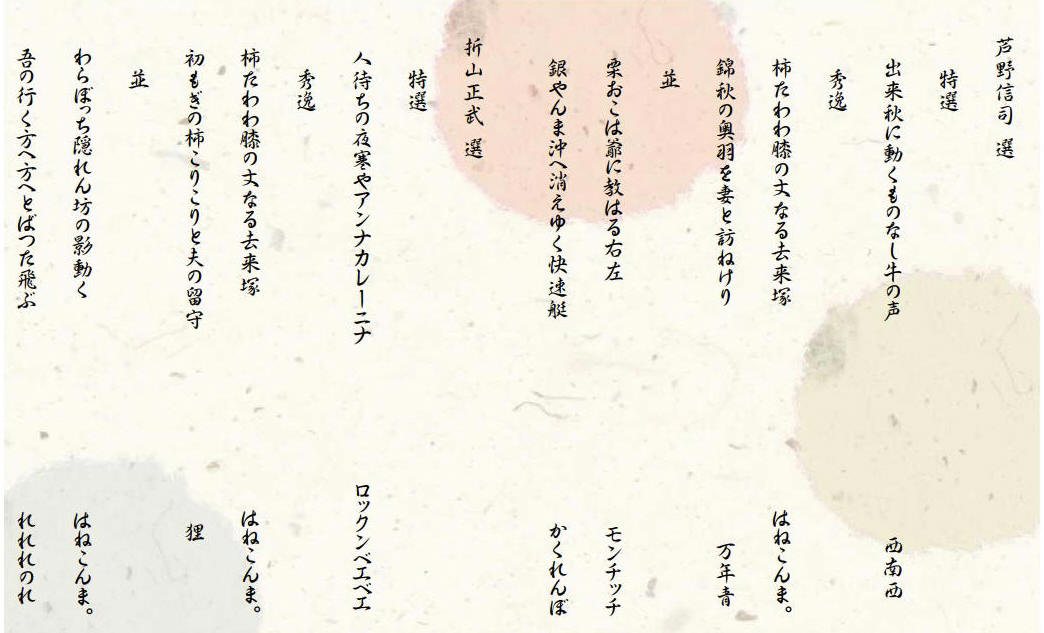 芦野信司 選
特選
出来秋に動くものなし牛の声 西南西
秀逸
柿たわわ膝の丈なる去来塚 はねこんま。
錦秋の奥羽を妻と訪ねけり 万年青
並
栗おこは爺に教はる右左 モンチッチ
銀やんま沖へ消えゆく快速艇 かくれんぼ
折山正武 選
特選
人待ちの夜寒やアンナカレーニナ ロックンベエベエ
秀逸
柿たわわ膝の丈なる去来塚 はねこんま。
初もぎの柿こりこりと夫の留守 狸
並
わらぼっち隠れん坊の影動く はねこんま。
吾の行く方へ方へとばつた飛ぶ れれれのれ